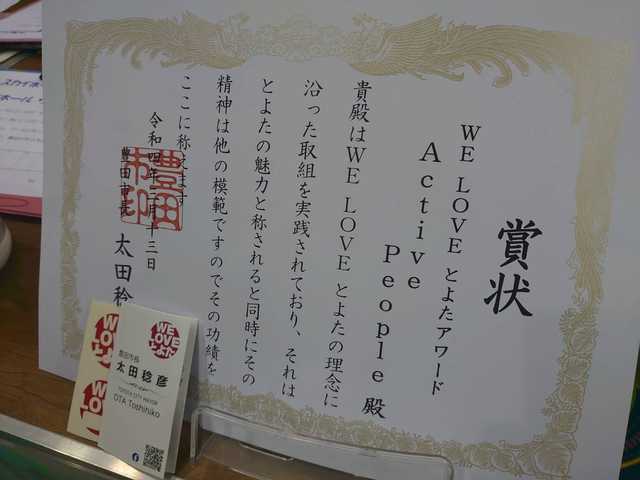 賞状
WE LOVE とよたアワード
Active
People 殿
貴殿はWE LOVE とよたの理念に
沿った取組を実践されており、それは
とよたの魅力と称されると同時にその
精神は他の模範ですのでその功績を
ここに称えます
令和四年二月十三日
豊田市長 太田稔
豊田市印
WE LOVE とよた
豊田市長
太田稔彦
TOYOTA CITY MAYOR
OTA Toshihiko
WE LOVE とよた